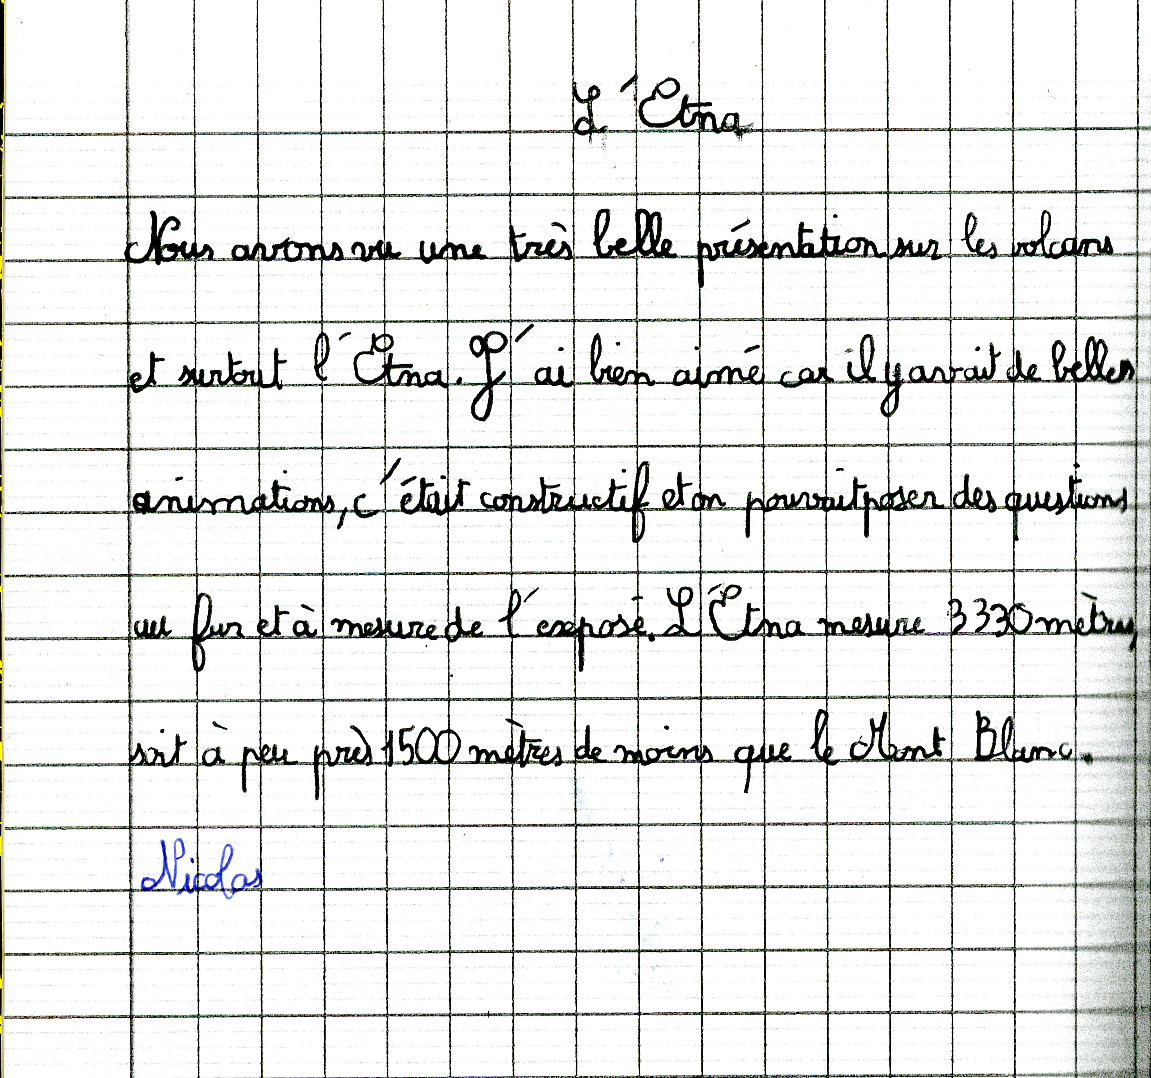 L'Etna
Nous avons vu une très belle présentation sur les volcans
et surtout l'Etna. J'ai bien aimé car il y avait de belles
animations, c'était constructif et on pouvait poser des questions
au fur et à mesure de l'exposé. L'Etna mesure 3330 mètres,
soit à peu près 1500 mètres de moins que le Mont Blanc.
Nicolas